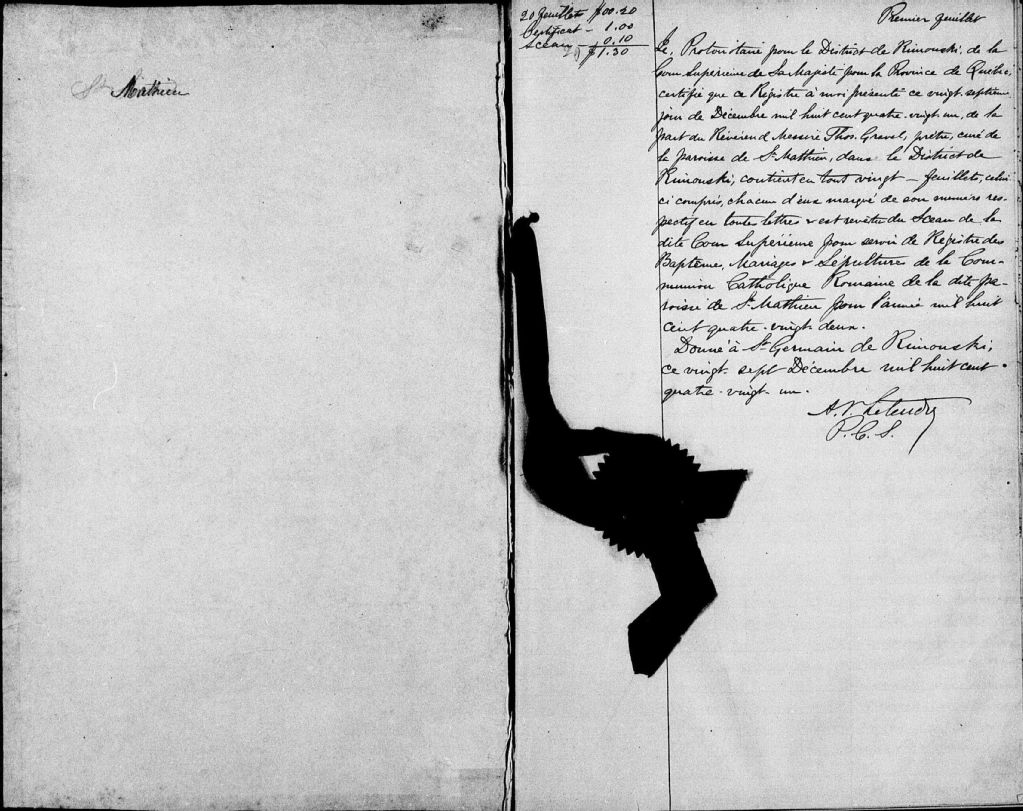 St Mathieu
20 feuillets $00.20
Certificat - 1.00
Sceau - 0.10
$1.30
Premier feuillet
Je, Protonotaire pour le District de Rimouski, de la
Cour Supérieure de Sa Majesté pour la Province de Québec,
certifie que ce Régistre à moi présenté ce vingt-septième
jour de Décembre mil huit cent quatre-vingt-un, de la
part du Révérend Messire Thos. Gravel, prêtre, curé de
la paroisse de St Mathieu, dans le District de
Rimouski, contient en tout vingt - feuillets, celui-
ci compris, chacun d'eux marqué de son numéro res-
pectif en toutes lettres & est revêtu du Sceau de la
dite Cour Supérieure pour servir de Régistre des
Baptêmes, Mariages & Sépultures de la Com-
munion Catholique Romaine de la dite pa-
roisse de St Mathieu pour l'année mil huit
cent quatre-vingt-deux.
Donné à St Germain de Rimouski,
ce vingt-sept Décembre mil huit cent
quatre-vingt-un.
A. P. Letendre
P. C. S.